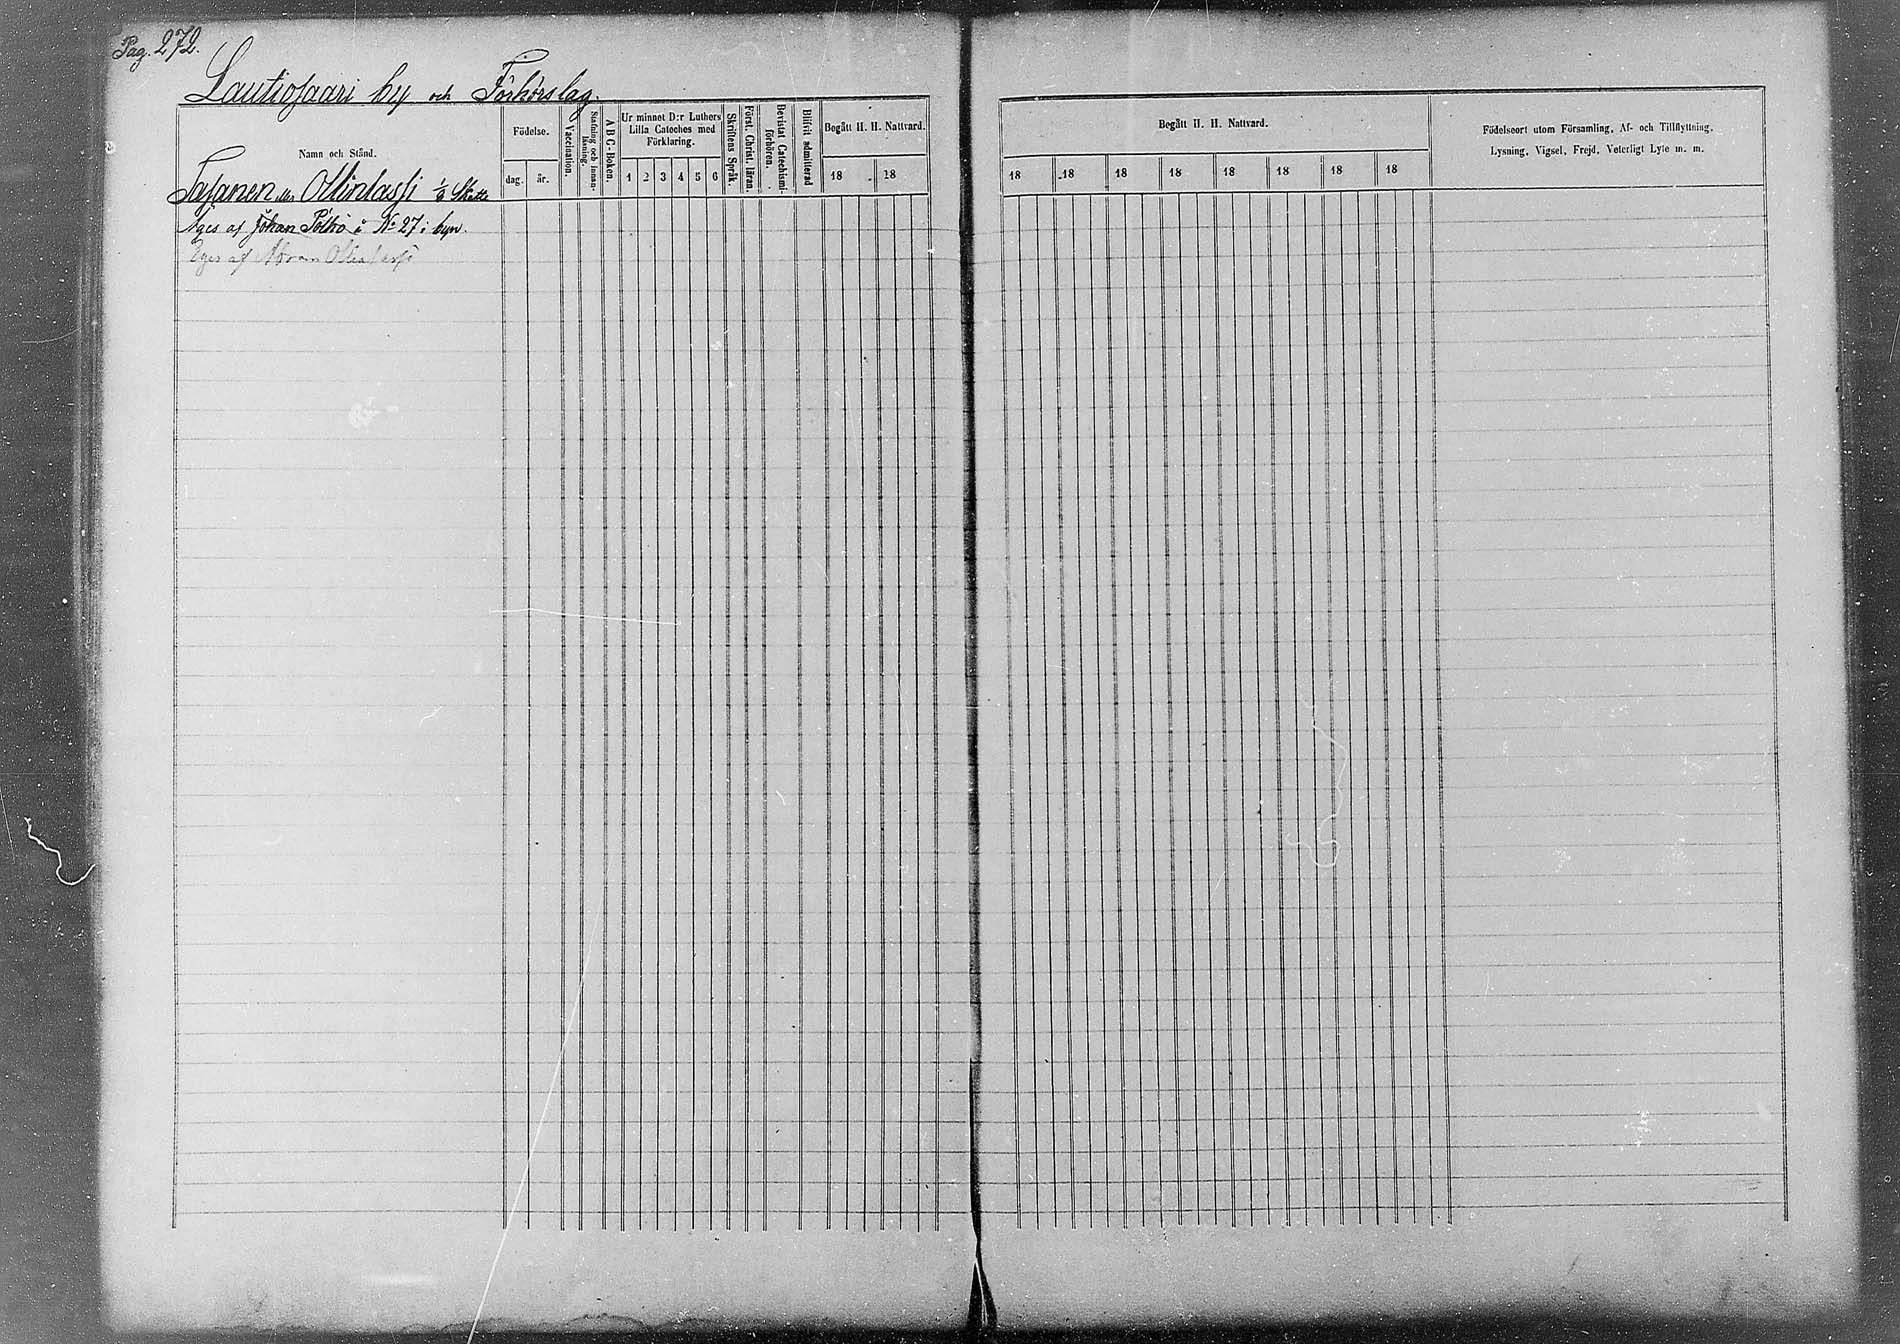 Pag. 272.
Lautiosaari by och Förhörslag.
Namn och Stånd.
Födelse.
dag. år.
Vaccination.
Stafning och innan-läsning.
ABC-Boken.
Ur minnet D:r Luthers
Lilla Cateches med
Förklaring.
1 2 3 4 5 6
Skriftens Språk.
Först. Christ. läran.
Bevistat Catechismi-förhören.
Blifvit admitterad
Begått H. H. Nattvard.
18 18
Begått H. H. Nattvard.
18 18 18 18 18 18 18 18
Födelseort utom Församling, Af- och Tillflyttning,
Lysning, Vigsel, Frejd, Veterligt Lyte m. m.
Ollinlassi Skatte
Äges af Johan å No 27 i byn.
Eges af Abram Ollinlassi